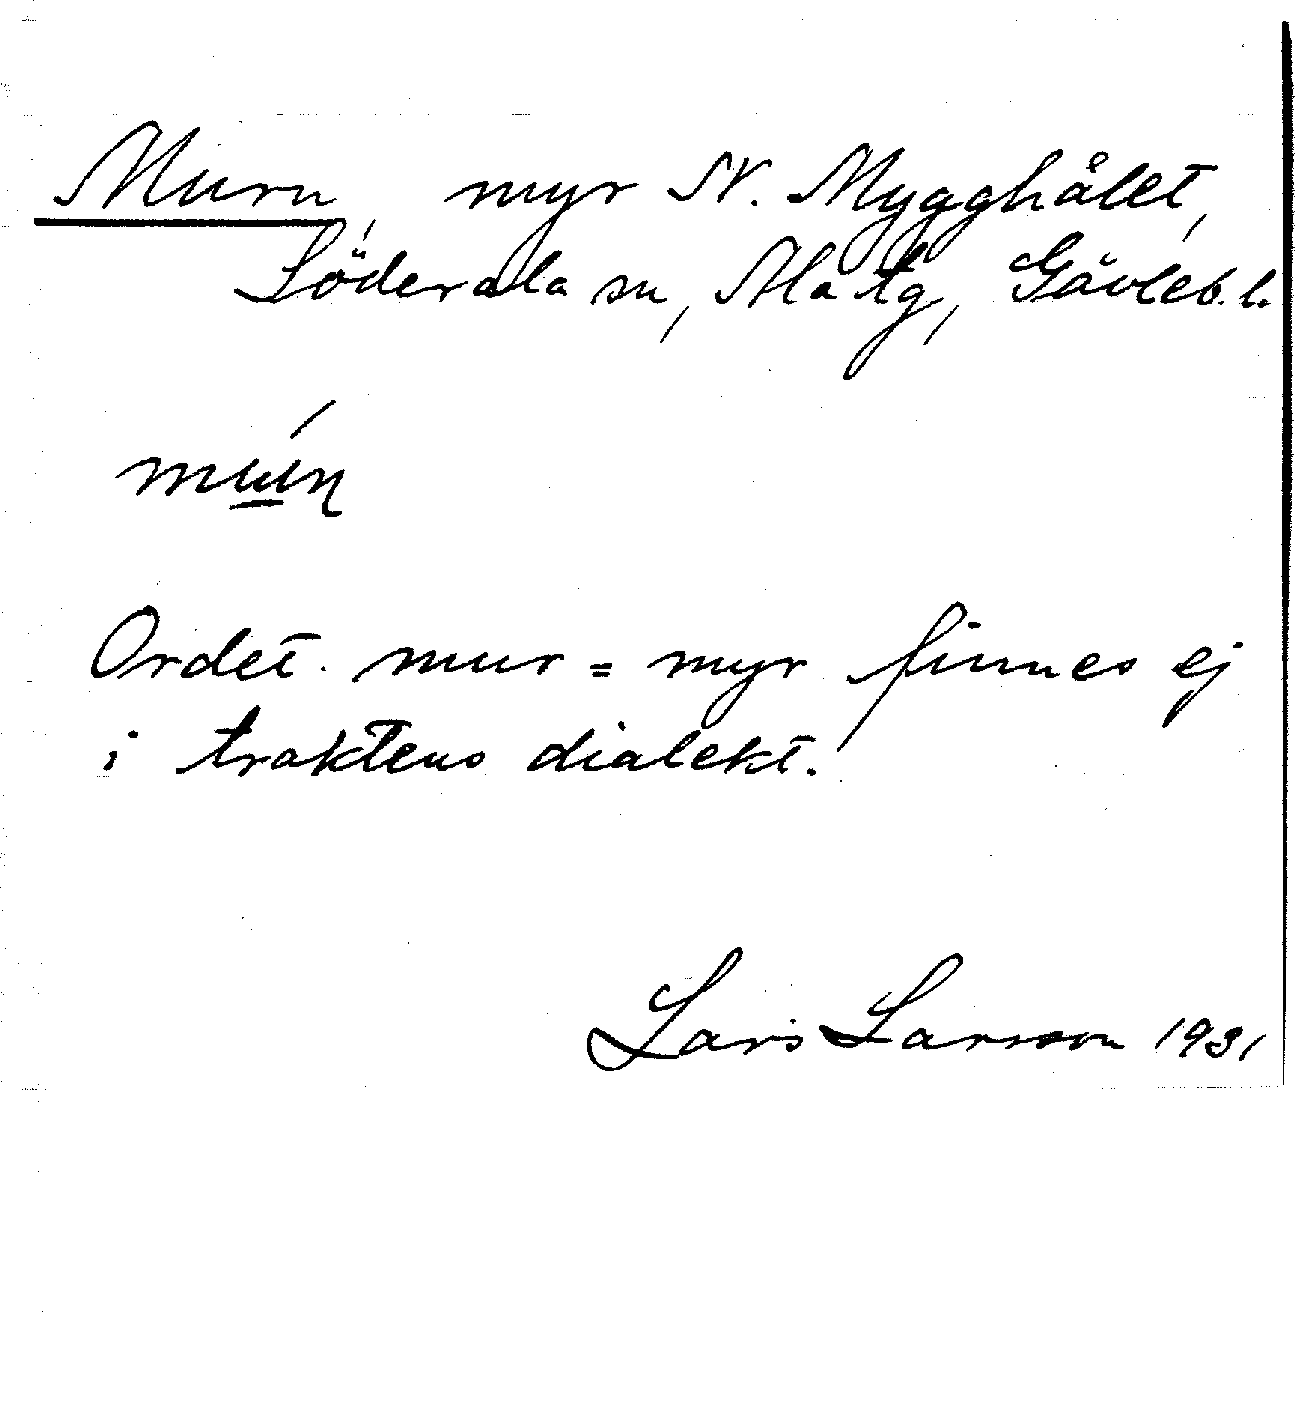 Murn, myr N. Mygghålet,
Söderala sn, Ala tg, Gävleb. l.
Ordet mur = myr finnes ej
i traktens dialekt.
Lars Larsson 1931